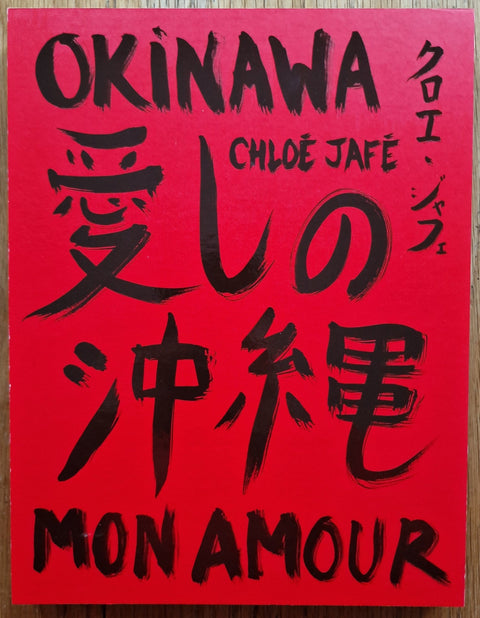 OKiNAWA
クロエ・ジャフェ
CHLOÉ JAFÉ
愛しの
沖縄
MON AMOUR